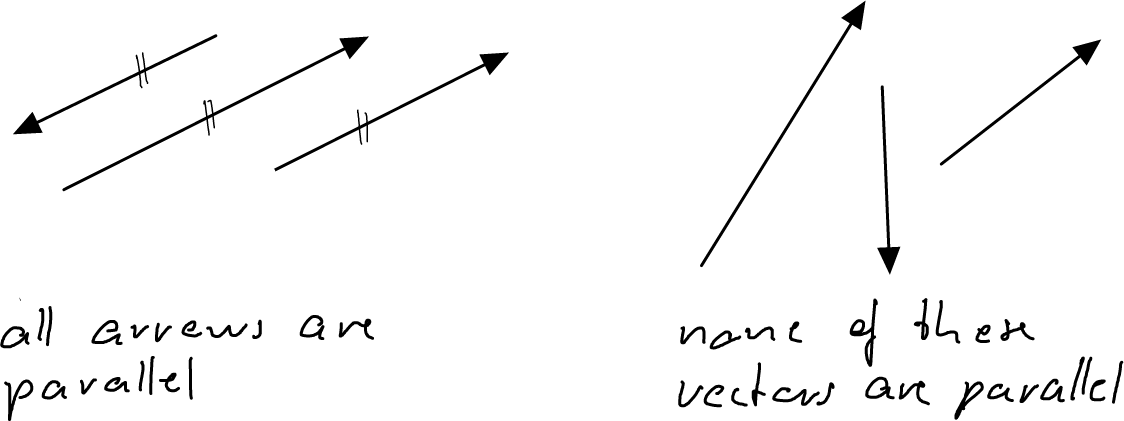 all arrows are
parallel
none of these
vectors are parallel